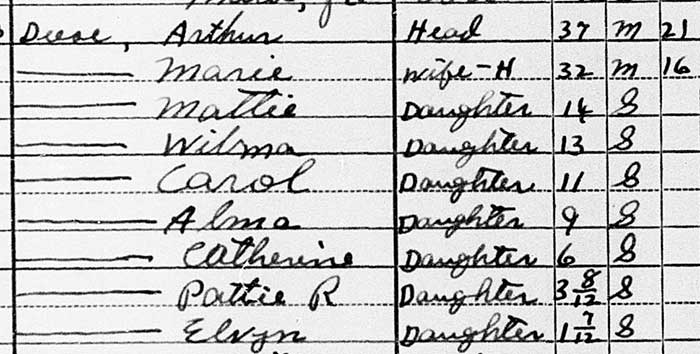 Deese, Arthur Head 37 M 21
Marie Wife-H 32 M 16
Mattie Daughter 14 S
Wilma Daughter 13 S
Carol Daughter 11 S
Alma Daughter 9 S
Catherine Daughter 6 S
Pattie R Daughter 3 8/12 S
Elvyn Daughter 1 7/12 S